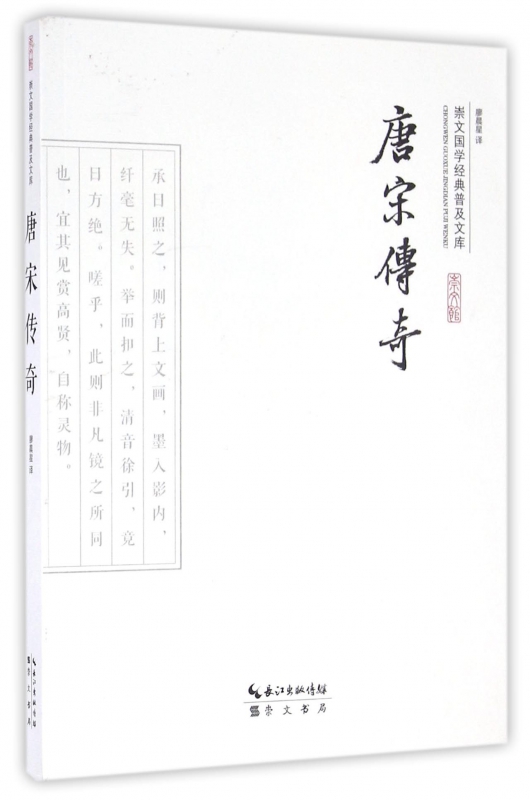 崇文馆
崇文国学经典普及文库
唐宋传奇
廖晨星 译
长江出版传媒
崇文书局
承日照之，则背上文画，墨入影内，
纤毫无失。举而扣之，清音徐引，竟
日方绝。嗟乎，此则非凡镜之所同
也，宜其见赏高贤，自称灵物。
唐宋傳奇
崇文国学经典普及文库
CHONGWEN GUOXUE JINGDIAN PUJI WENKU
廖晨星 译
崇文館
長江出版传媒
崇文书局